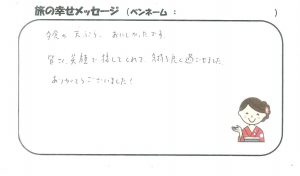 旅の幸せメッセージ (ペンネーム: )
おいしかったです
皆さん笑顔で接してくれて、気持ち良く過ごせました
ありがとうございました!